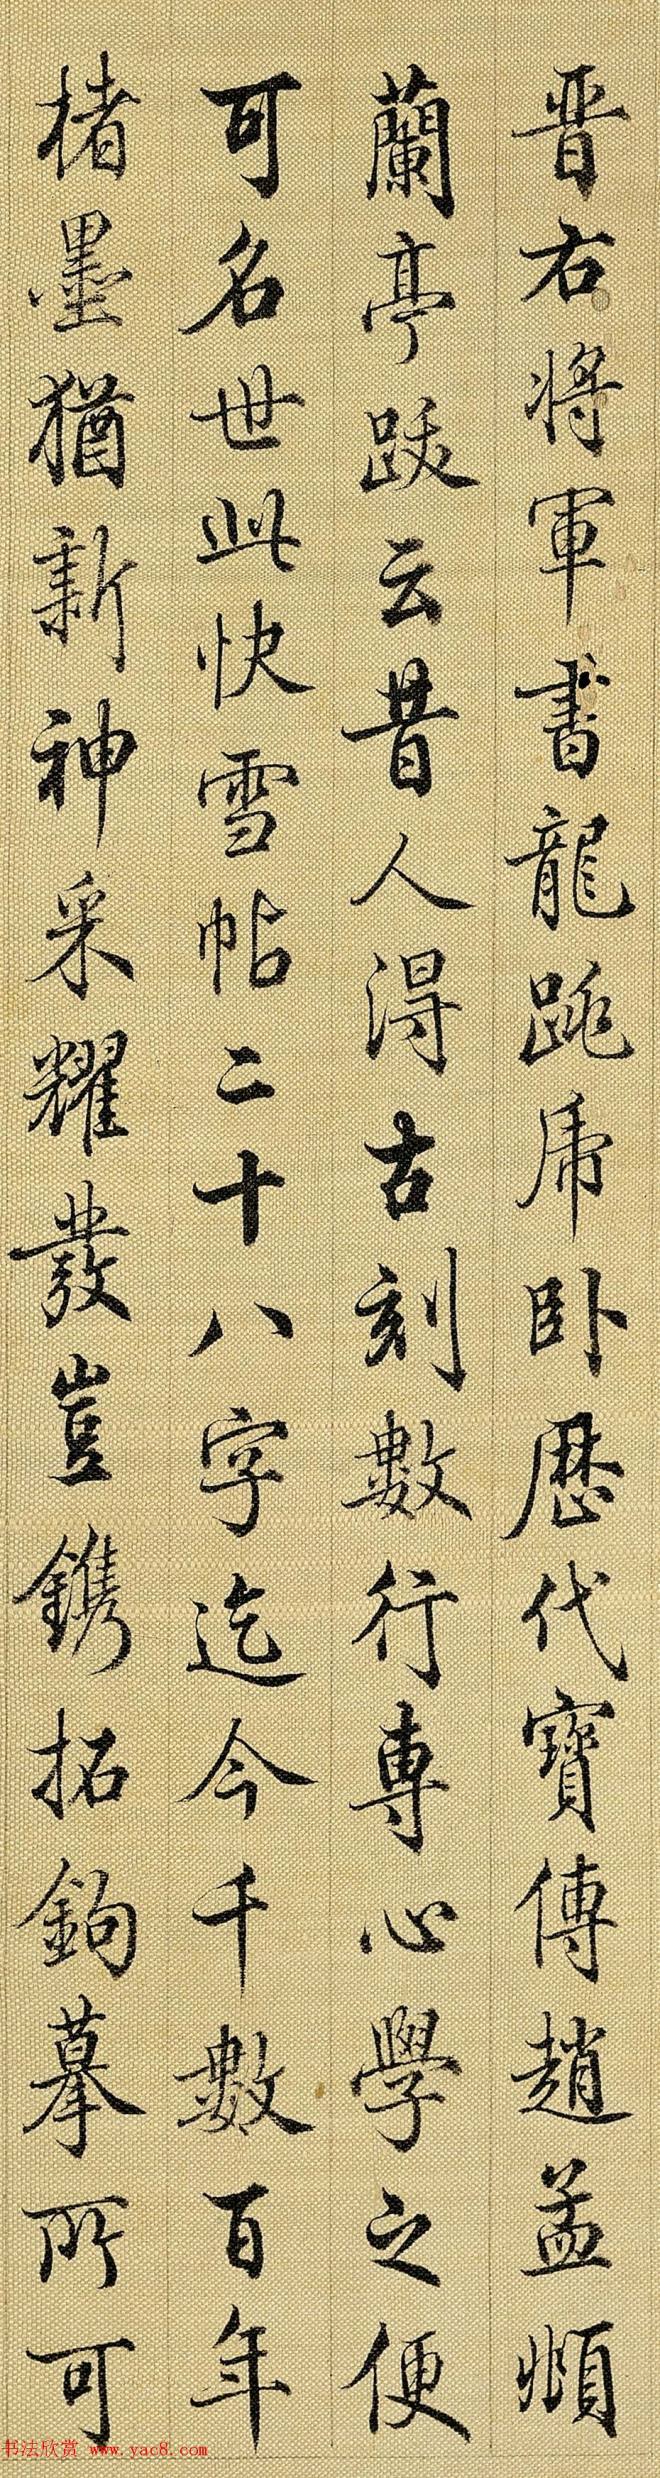 晋右将軍書龍跳虎卧歴代寶傳趙孟頫
蘭亭跋云昔人得古刻數行専心學之便
可名世此快雪帖二十八字迄今千數百年
楮墨猶新神采耀發豈鐫拓鉤摹所可
书法欣赏 www.yac8.com